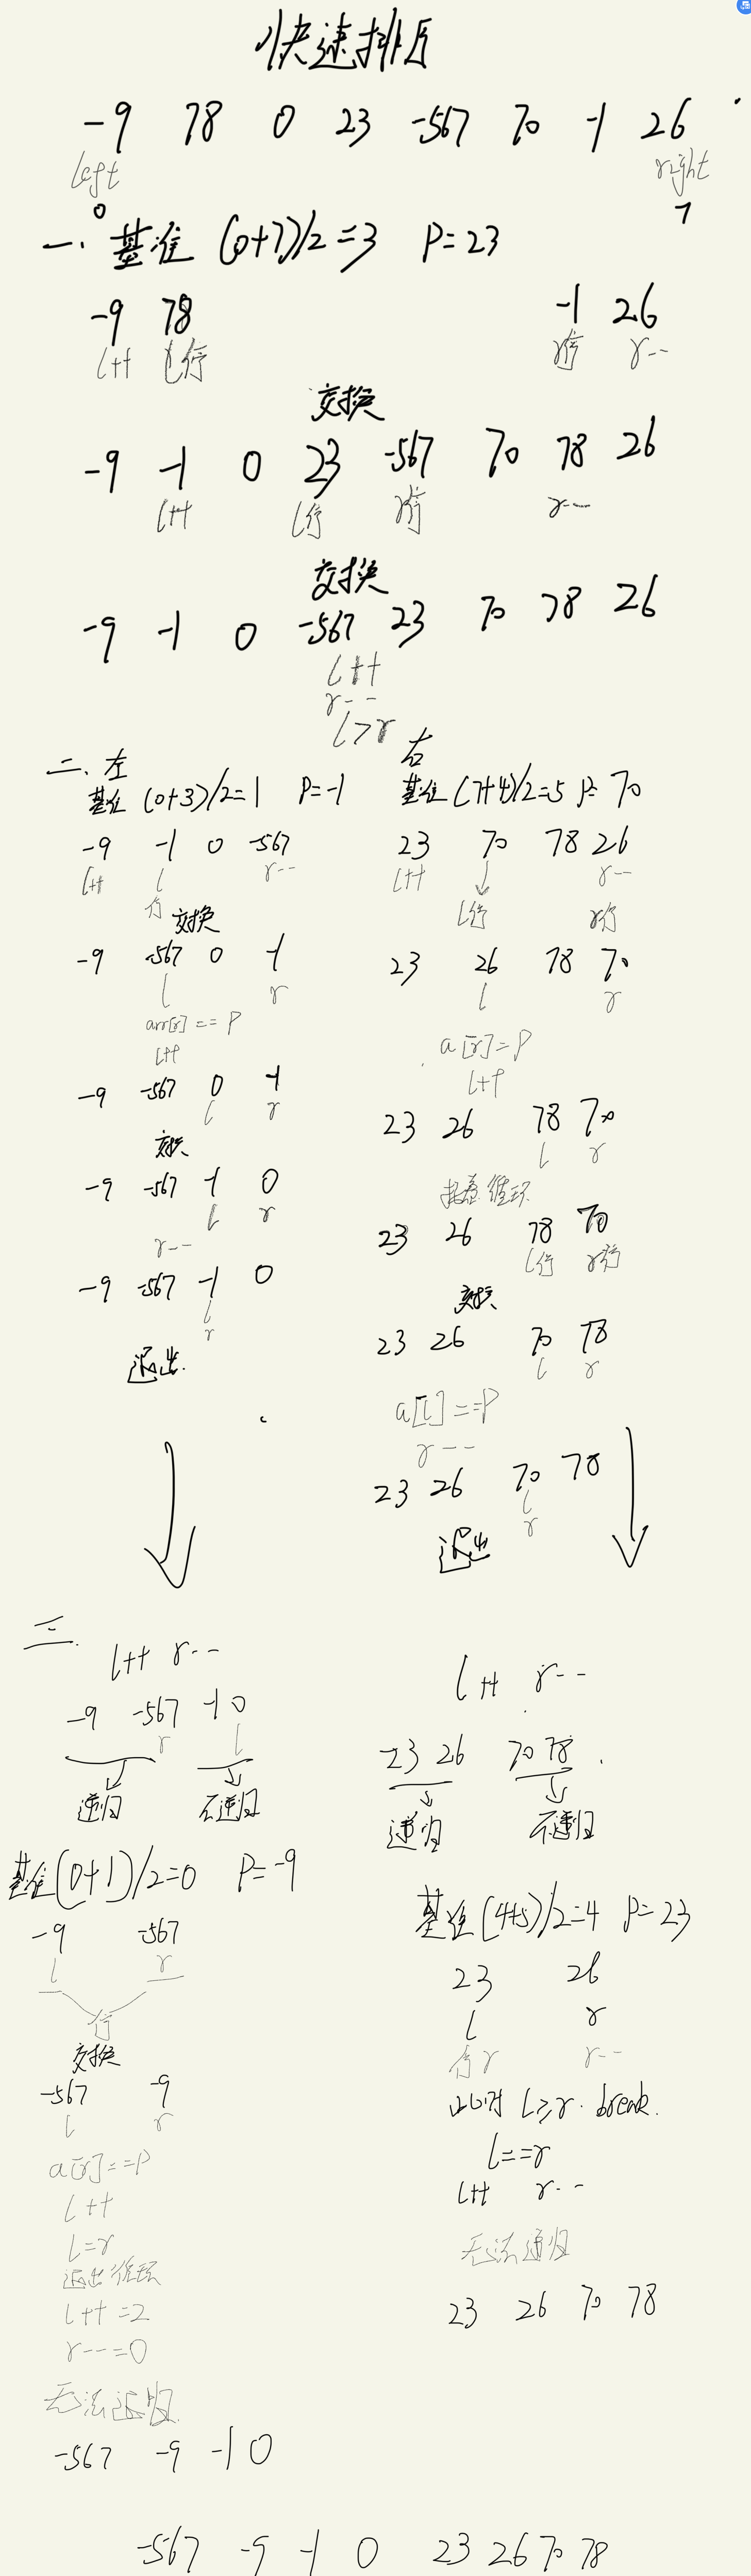 快速排序
-9 78 0 23 -567 70 -1 26
left right
0 7
一. 基准 (0+7)/2=3 P=23
-9 78 -1 26
l++ l停 r停 r--
交换
-9 -1 0 23 -567 70 78 26
l++ l停 r停 r--
交换
-9 -1 0 -567 23 70 78 26
l++
r--
l>r
二、左
基准 (0+3)/2=1 P=-1
-9 -1 0 -567
l++ l r--
停
交换
-9 -567 0 -1
l r
arr[r]==P
l++
-9 -567 0 -1
l r
交换
-9 -567 -1 0
l r
r--
-9 -567 -1 0
l
r
退出.
右
基准 (7+4)/2=5 P=70
23 70 78 26
l++ r--
l停 r停
23 26 78 70
l r
a[r]=P
l++
23 26 78 70
l r
接着循环
23 26 78 70
l停 r停
交换
23 26 70 78
l r
a[l]==P
r--
23 26 70 78
l
r
退出
三.
l++ r--
-9 -567 -1 0
r l
递归 不递归
基准(0+1)/2=0 P=-9
-9 -567
l r
停
交换
-567 -9
l r
a[r]==P
l++
l=r
退出循环
l++=2
r--=0
无法递归
-567 -9 -1 0
l++ r--
23 26 70 78
递归 不递归
基准(4+5)/2=4 P=23
23 26
l r
停r r--
此时 l≥r. break.
l==r
l++ r--
无法递归
23 26 70 78
-567 -9 -1 0 23 26 70 78